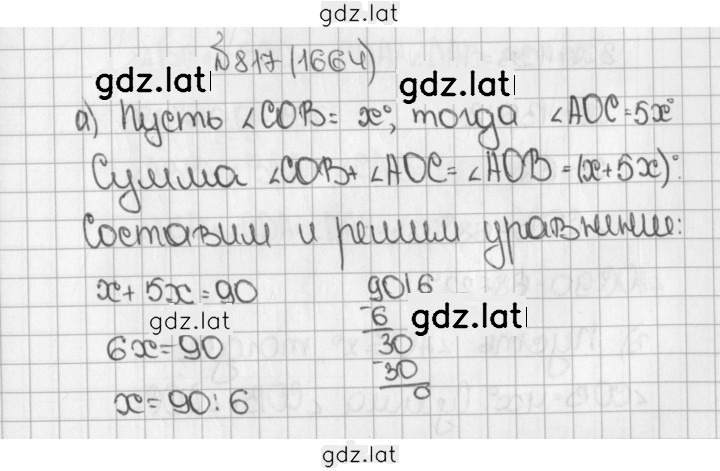 gdz.lat
№817(1664)
gdz.lat gdz.lat
а) Пусть ∠COB = x°, тогда ∠AOC = 5x°
Сумма ∠COB + ∠AOC = ∠AOB = (x + 5x)°
Составим и решим уравнение:
x + 5x = 90
gdz.lat
6x = 90
x = 90 : 6
90 | 6
- 6
gdz.lat
30
- 30
0
gdz.lat